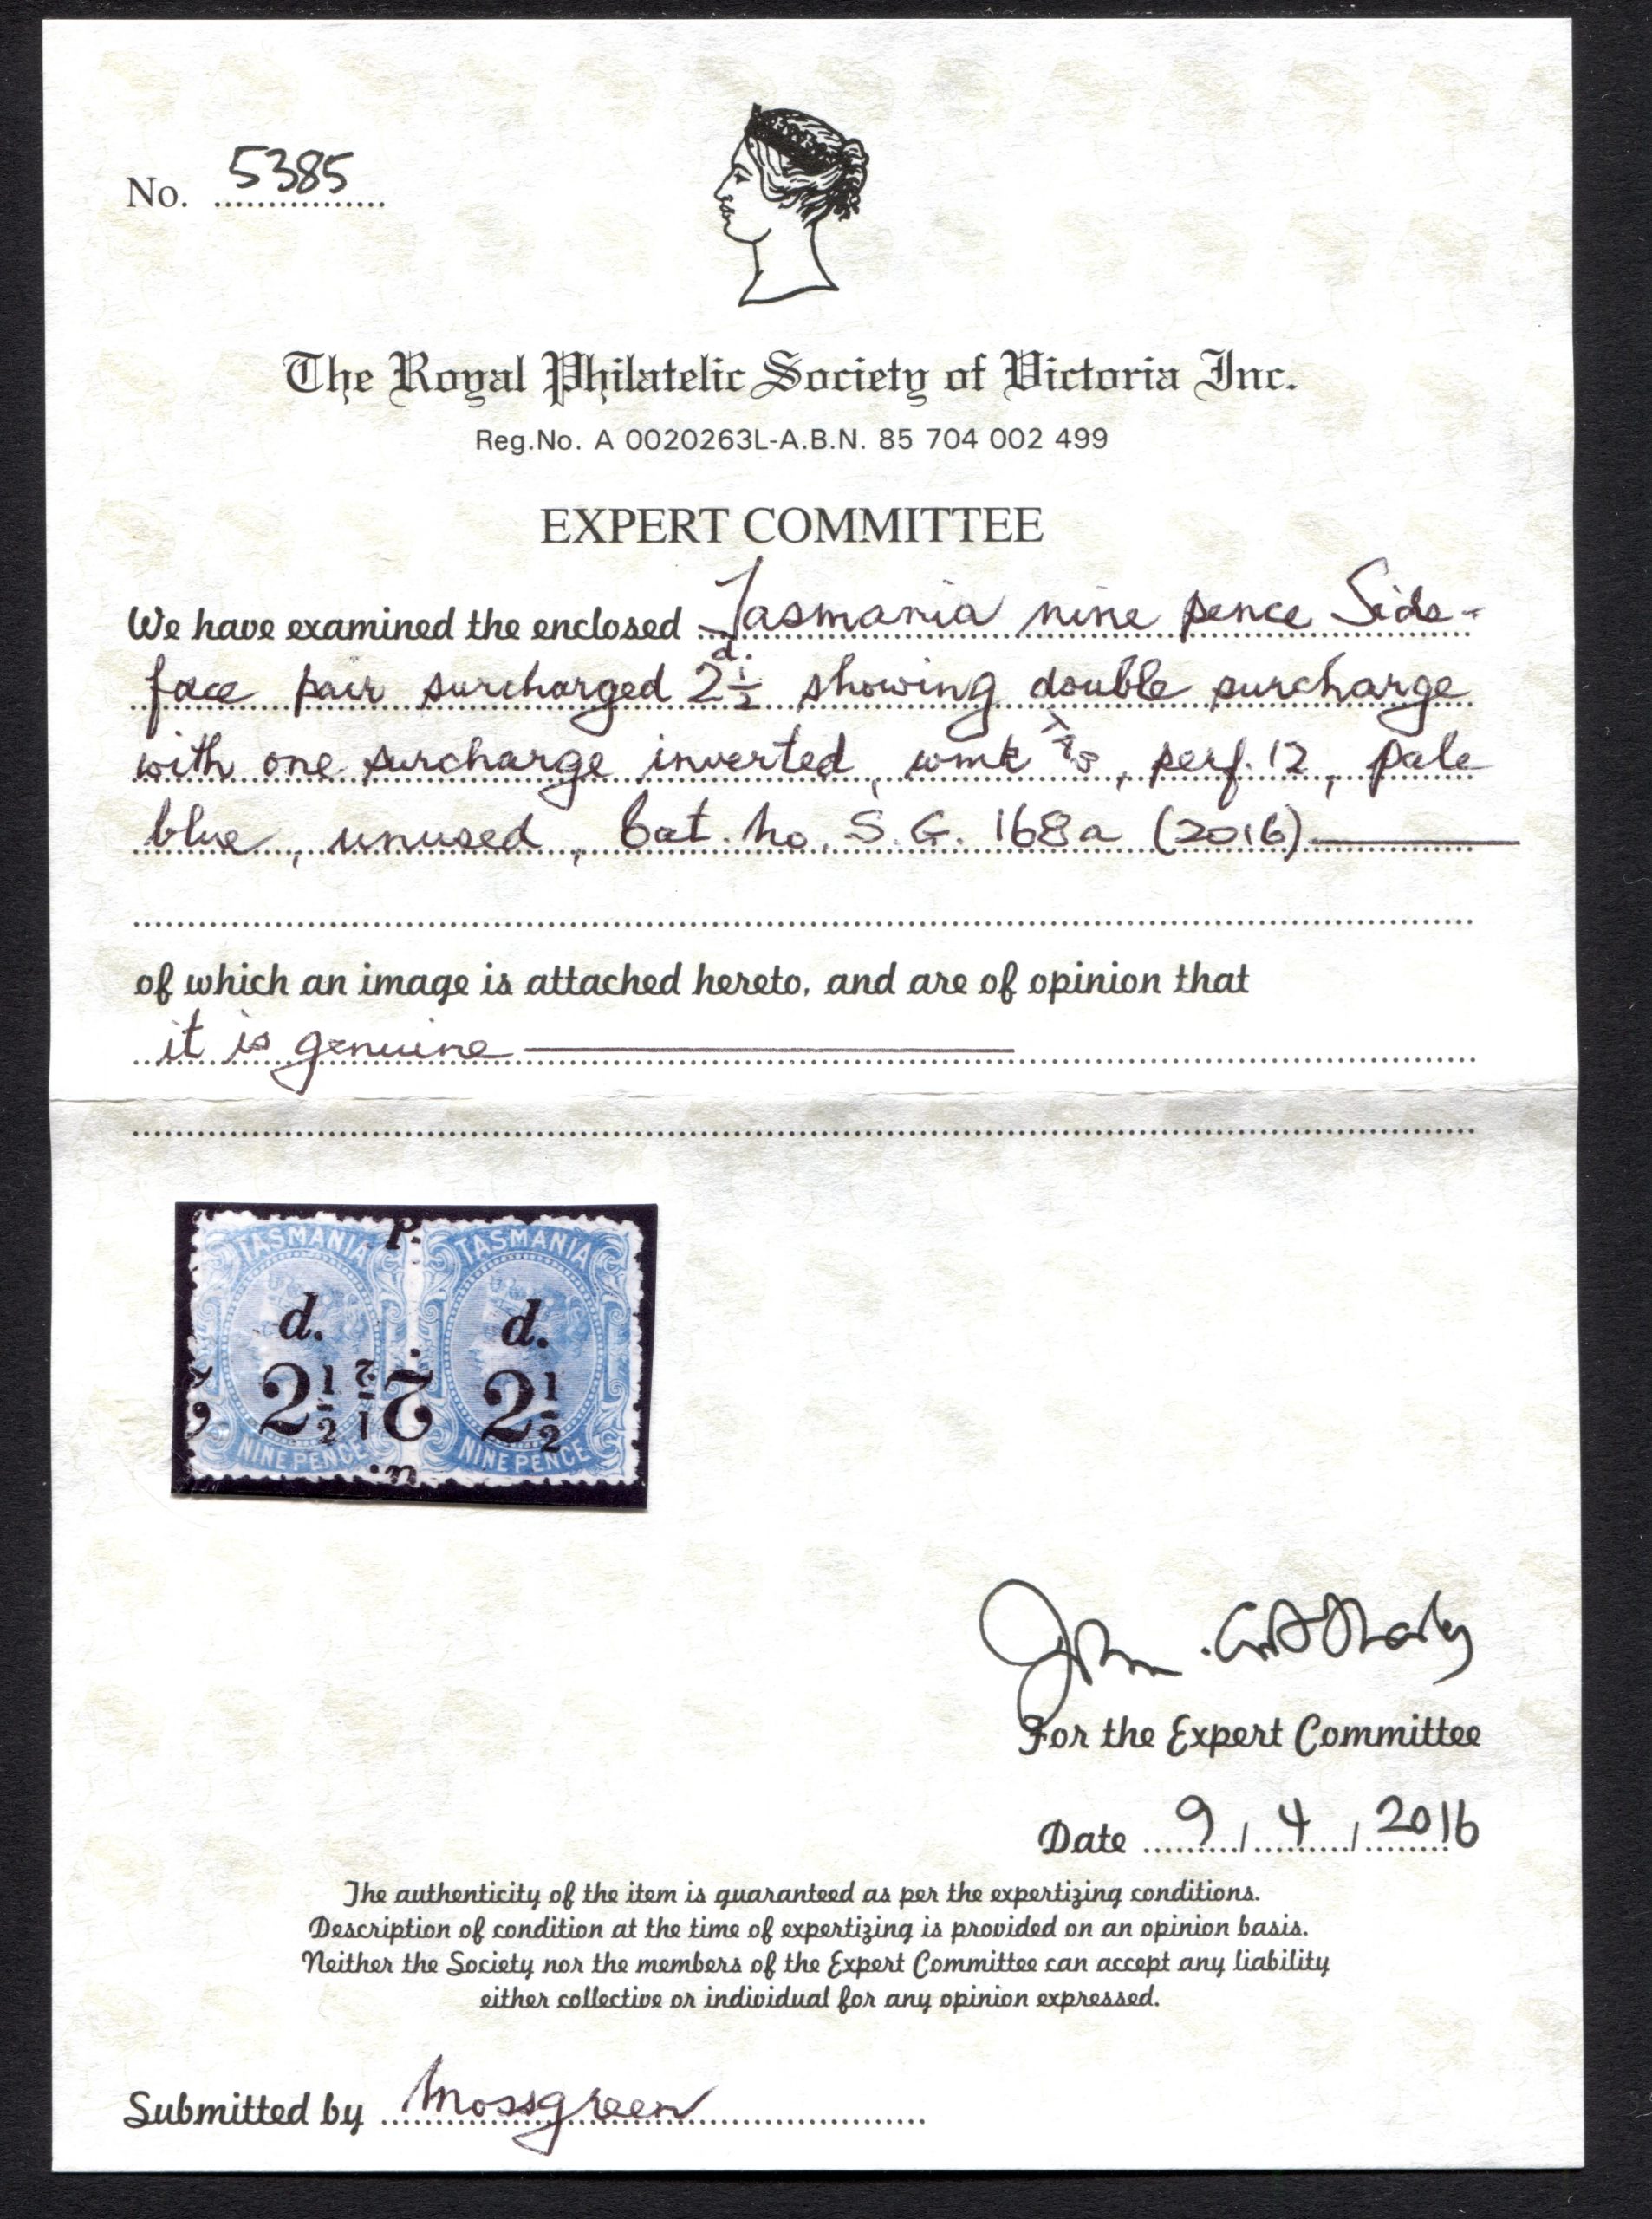 No. 5385
The Royal Philatelic Society of Victoria Inc.
Reg.No. A 0020263L-A.B.N. 85 704 002 499
EXPERT COMMITTEE
We have examined the enclosed Tasmania nine pence Side-
face pair surcharged 2½d. showing double surcharge
with one surcharge inverted, wmk TAS, perf. 12, pale
blue, unused, Cat. no. S.G. 168a (2016)
of which an image is attached hereto, and are of opinion that
it is genuine
TASMANIA TASMANIA
d. d.
2½ 2½ 2½
NINE PENCE NINE PENCE
John
For the Expert Committee
Date 9/4/2016
The authenticity of the item is guaranteed as per the expertizing conditions.
Description of condition at the time of expertizing is provided on an opinion basis.
Neither the Society nor the members of the Expert Committee can accept any liability
either collective or individual for any opinion expressed.
Submitted by Mossgreen